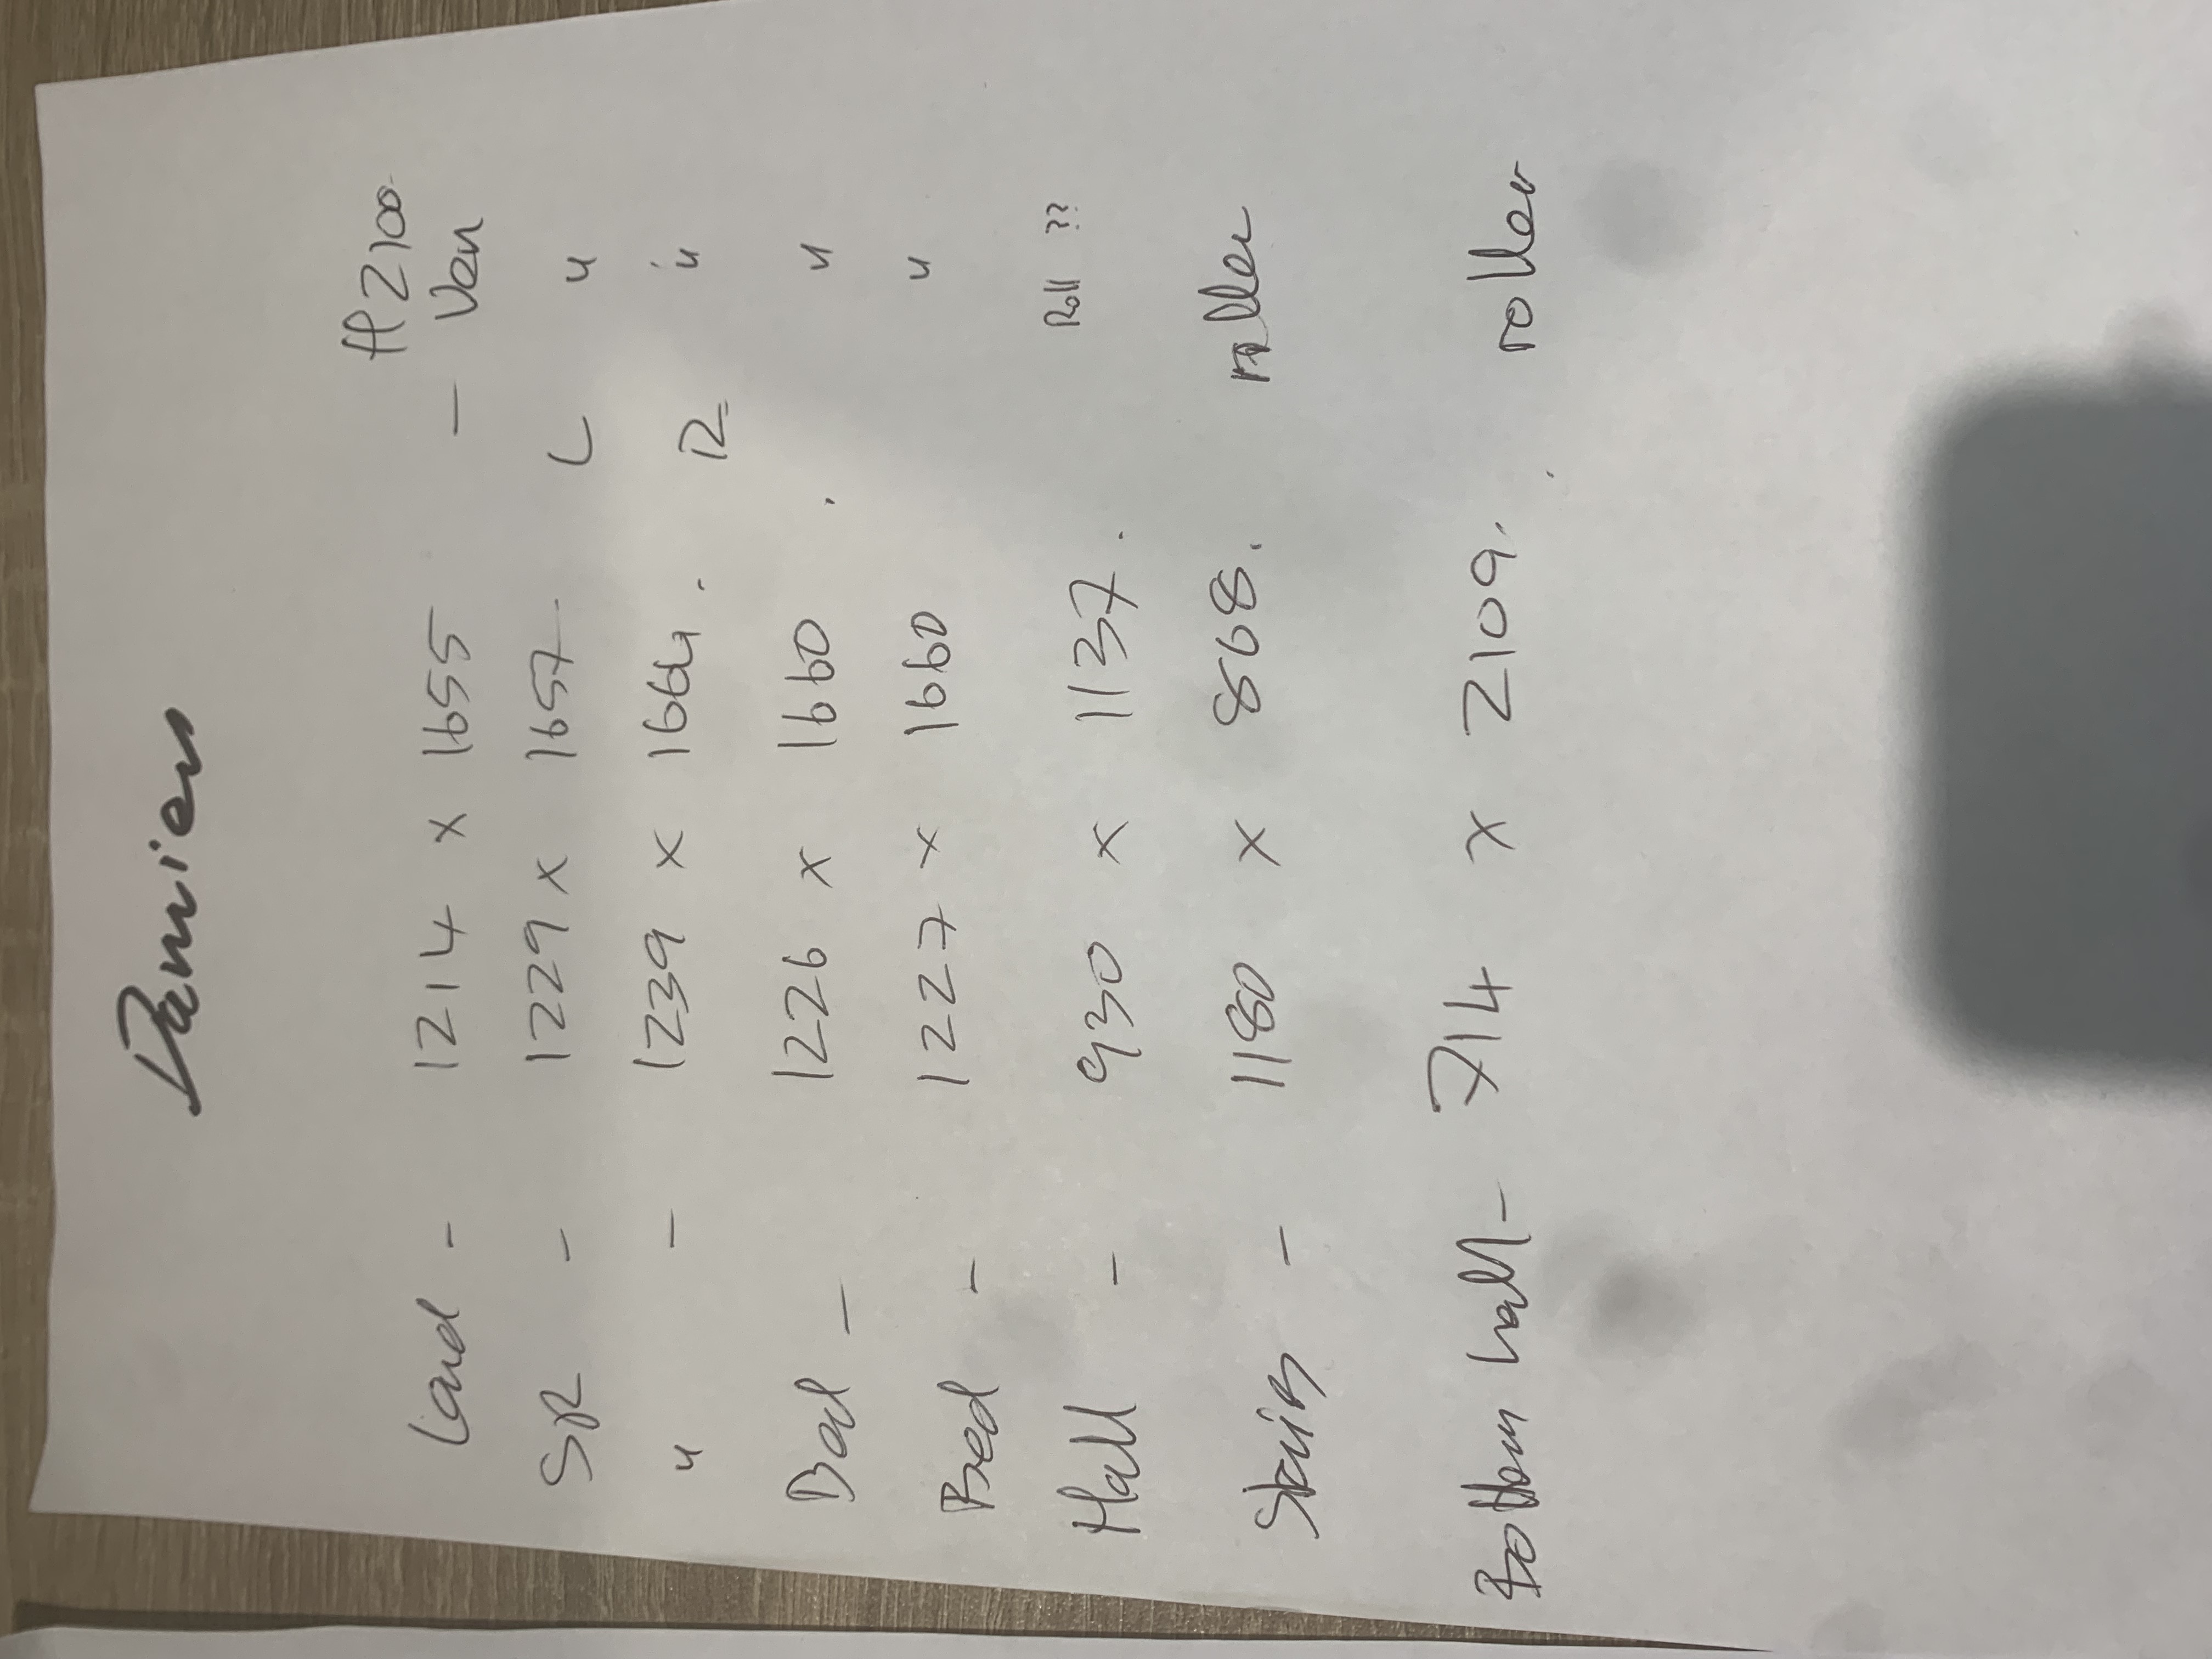 Damien
H 2100
Land - 1214 x 1655 - Ven
SR - 1229 x 1657 L "
" - 1239 x 1664. R "
Bed - 1226 x 1660 "
Bed - 1227 x 1660 "
Hall - 930 x 1137. Roll ??
Stairs - 1180 x 868. roller
Bottom hall - 714 x 2109. roller